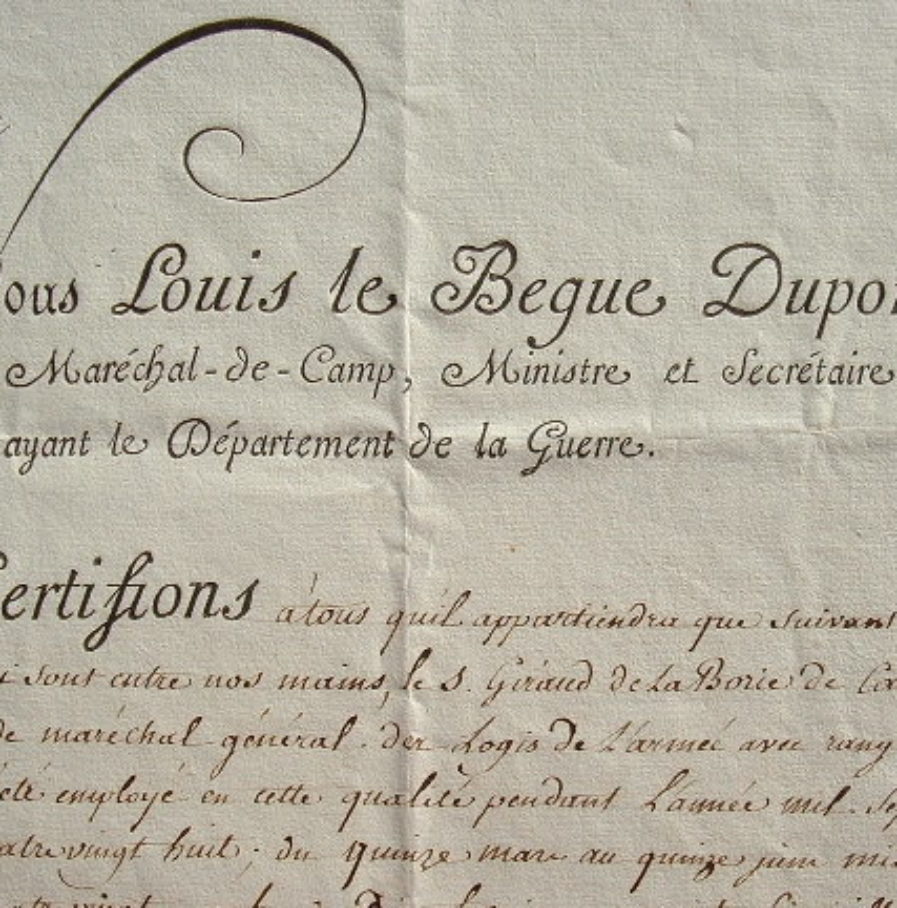 ous Louis le Begue Dupor
Maréchal-de-Camp, Ministre et Secrétaire
ayant le Département de la Guerre.
ertiffions à tous qu'il appartiendra que suivant
i sont entre nos mains, le S. Giraud de La Borie de Co
de maréchal général des Logis de L'armée avec rang
été employé en cette qualité pendant L'année mil Sep
atre vingt huit; du quinze mars au quinze juin mi
vingt